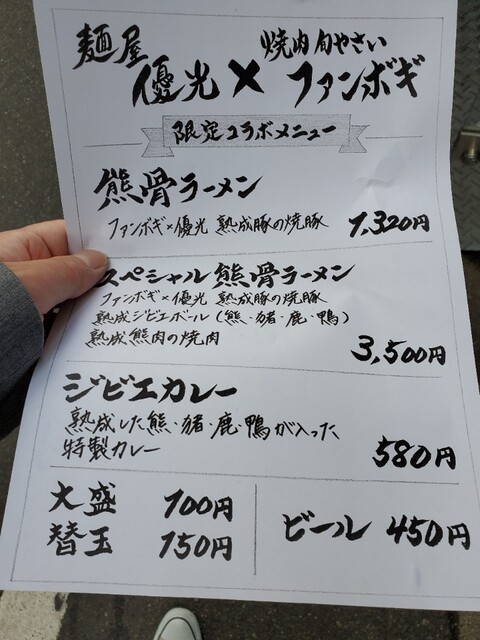 麺屋 優光 × 焼肉旬やさい ファンボギ
限定コラボメニュー
熊骨ラーメン
ファンボギ×優光 熟成豚の焼豚 1,320円
スペシャル熊骨ラーメン
ファンボギ×優光 熟成豚の焼豚
熟成ジビエボール(熊・猪・鹿・鴨)
熟成熊肉の焼肉
3,500円
ジビエカレー
熟成した熊・猪・鹿・鴨が入った
特製カレー 580円
大盛 100円
替玉 150円
ビール 450円